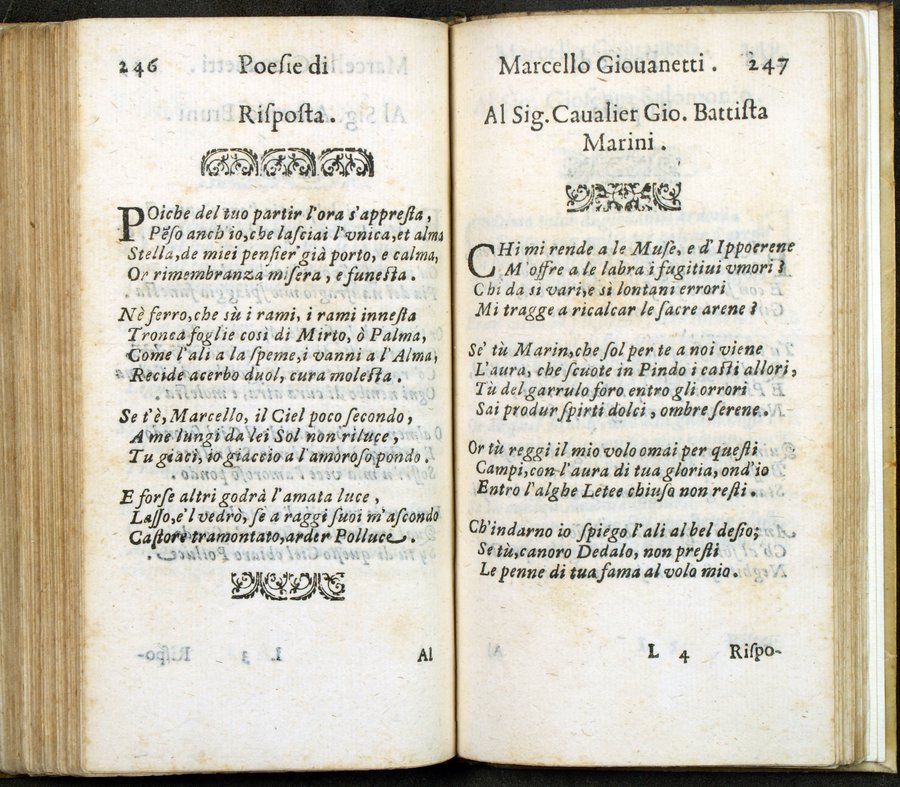 246 Poeſie di
Riſpoſta.
POiche del tuo partir l'ora s'appreſta,
Pẽſo anch'io, che laſciai l'vnica, et alma
Stella, de miei penſier già porto, e calma,
Or rimembranza miſera, e funeſta.
Nè ferro, che sù i rami, i rami inneſta
Tronca foglie così di Mirto, ò Palma,
Come l'ali a la ſpeme, i vanni a l'Alma,
Recide acerbo duol, cura moleſta.
Se t'è, Marcello, il Ciel poco ſecondo,
A me lungi da lei Sol non riluce,
Tu giaci, io giaccio a l'amoroſo pondo.
E forſe altri godrà l'amata luce,
Laſſo, e'l vedrò, ſe a raggi ſuoi m'aſcondo
Caſtore tramontato, arder Polluce.
L 3 Al
Marcello Giouanetti. 247
Al Sig. Caualier Gio. Battiſta
Marini.
CHi mi rende a le Muſe, e d'Ippocrene
M'offre a le labra i fugitiui vmori?
Chi da sì vari, e sì lontani errori
Mi tragge a ricalcar le ſacre arene?
Se' tù Marin, che ſol per te a noi viene
L'aura, che ſcuote in Pindo i caſti allori,
Tù del garrulo foro entro gli orrori
Sai produr ſpirti dolci, ombre ſerene.
Or tù reggi il mio volo omai per queſti
Campi, con l'aura di tua gloria, ond'io
Entro l'alghe Letee chiuſo non reſti.
Ch'indarno io ſpiego l'ali al bel deſio;
Se tù, canoro Dedalo, non preſti
Le penne di tua fama al volo mio.
L 4 Riſpo-